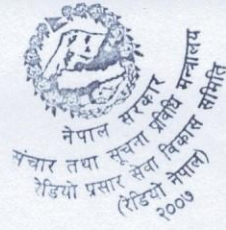 नेपाल सरकार
संचार तथा सूचना प्रविधि मन्त्रालय
रेडियो प्रसार सेवा विकास समिति
(रेडियो नेपाल)
२००७